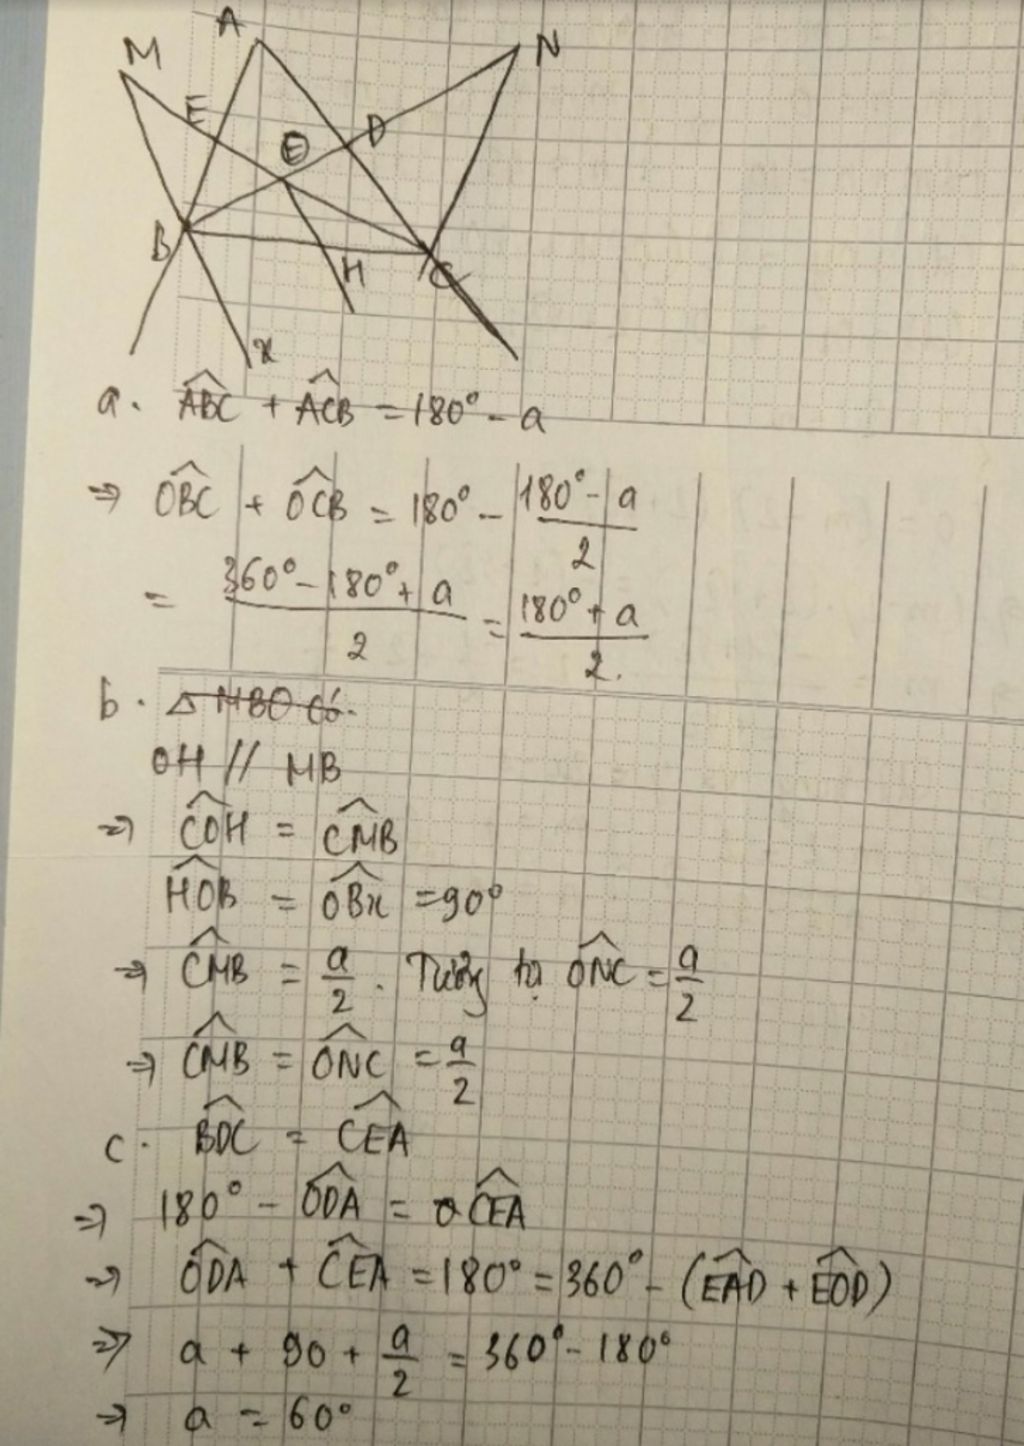 M A N
E O D
B H C
x
a. \widehat{ABC} + \widehat{ACB} = 180° - a
⇒ \widehat{OBC} + \widehat{OCB} = 180° - \frac{180° - a}{2}
= \frac{360° - 180° + a}{2} = \frac{180° + a}{2}.
b. Δ MBO có.
OH // MB
⇒ \widehat{COH} = \widehat{CMB}
\widehat{HOB} = \widehat{OBx} = 90°
⇒ \widehat{CMB} = \frac{a}{2}. Tương tự \widehat{ONC} = \frac{a}{2}
⇒ \widehat{CMB} = \widehat{ONC} = \frac{a}{2}
c. \widehat{BDC} = \widehat{CEA}
⇒ 180° - \widehat{ODA} = \widehat{CEA}
⇒ \widehat{ODA} + \widehat{CEA} = 180° = 360° - (\widehat{EAD} + \widehat{EOD})
⇒ a + 90 + \frac{a}{2} = 360° - 180°
⇒ a = 60°